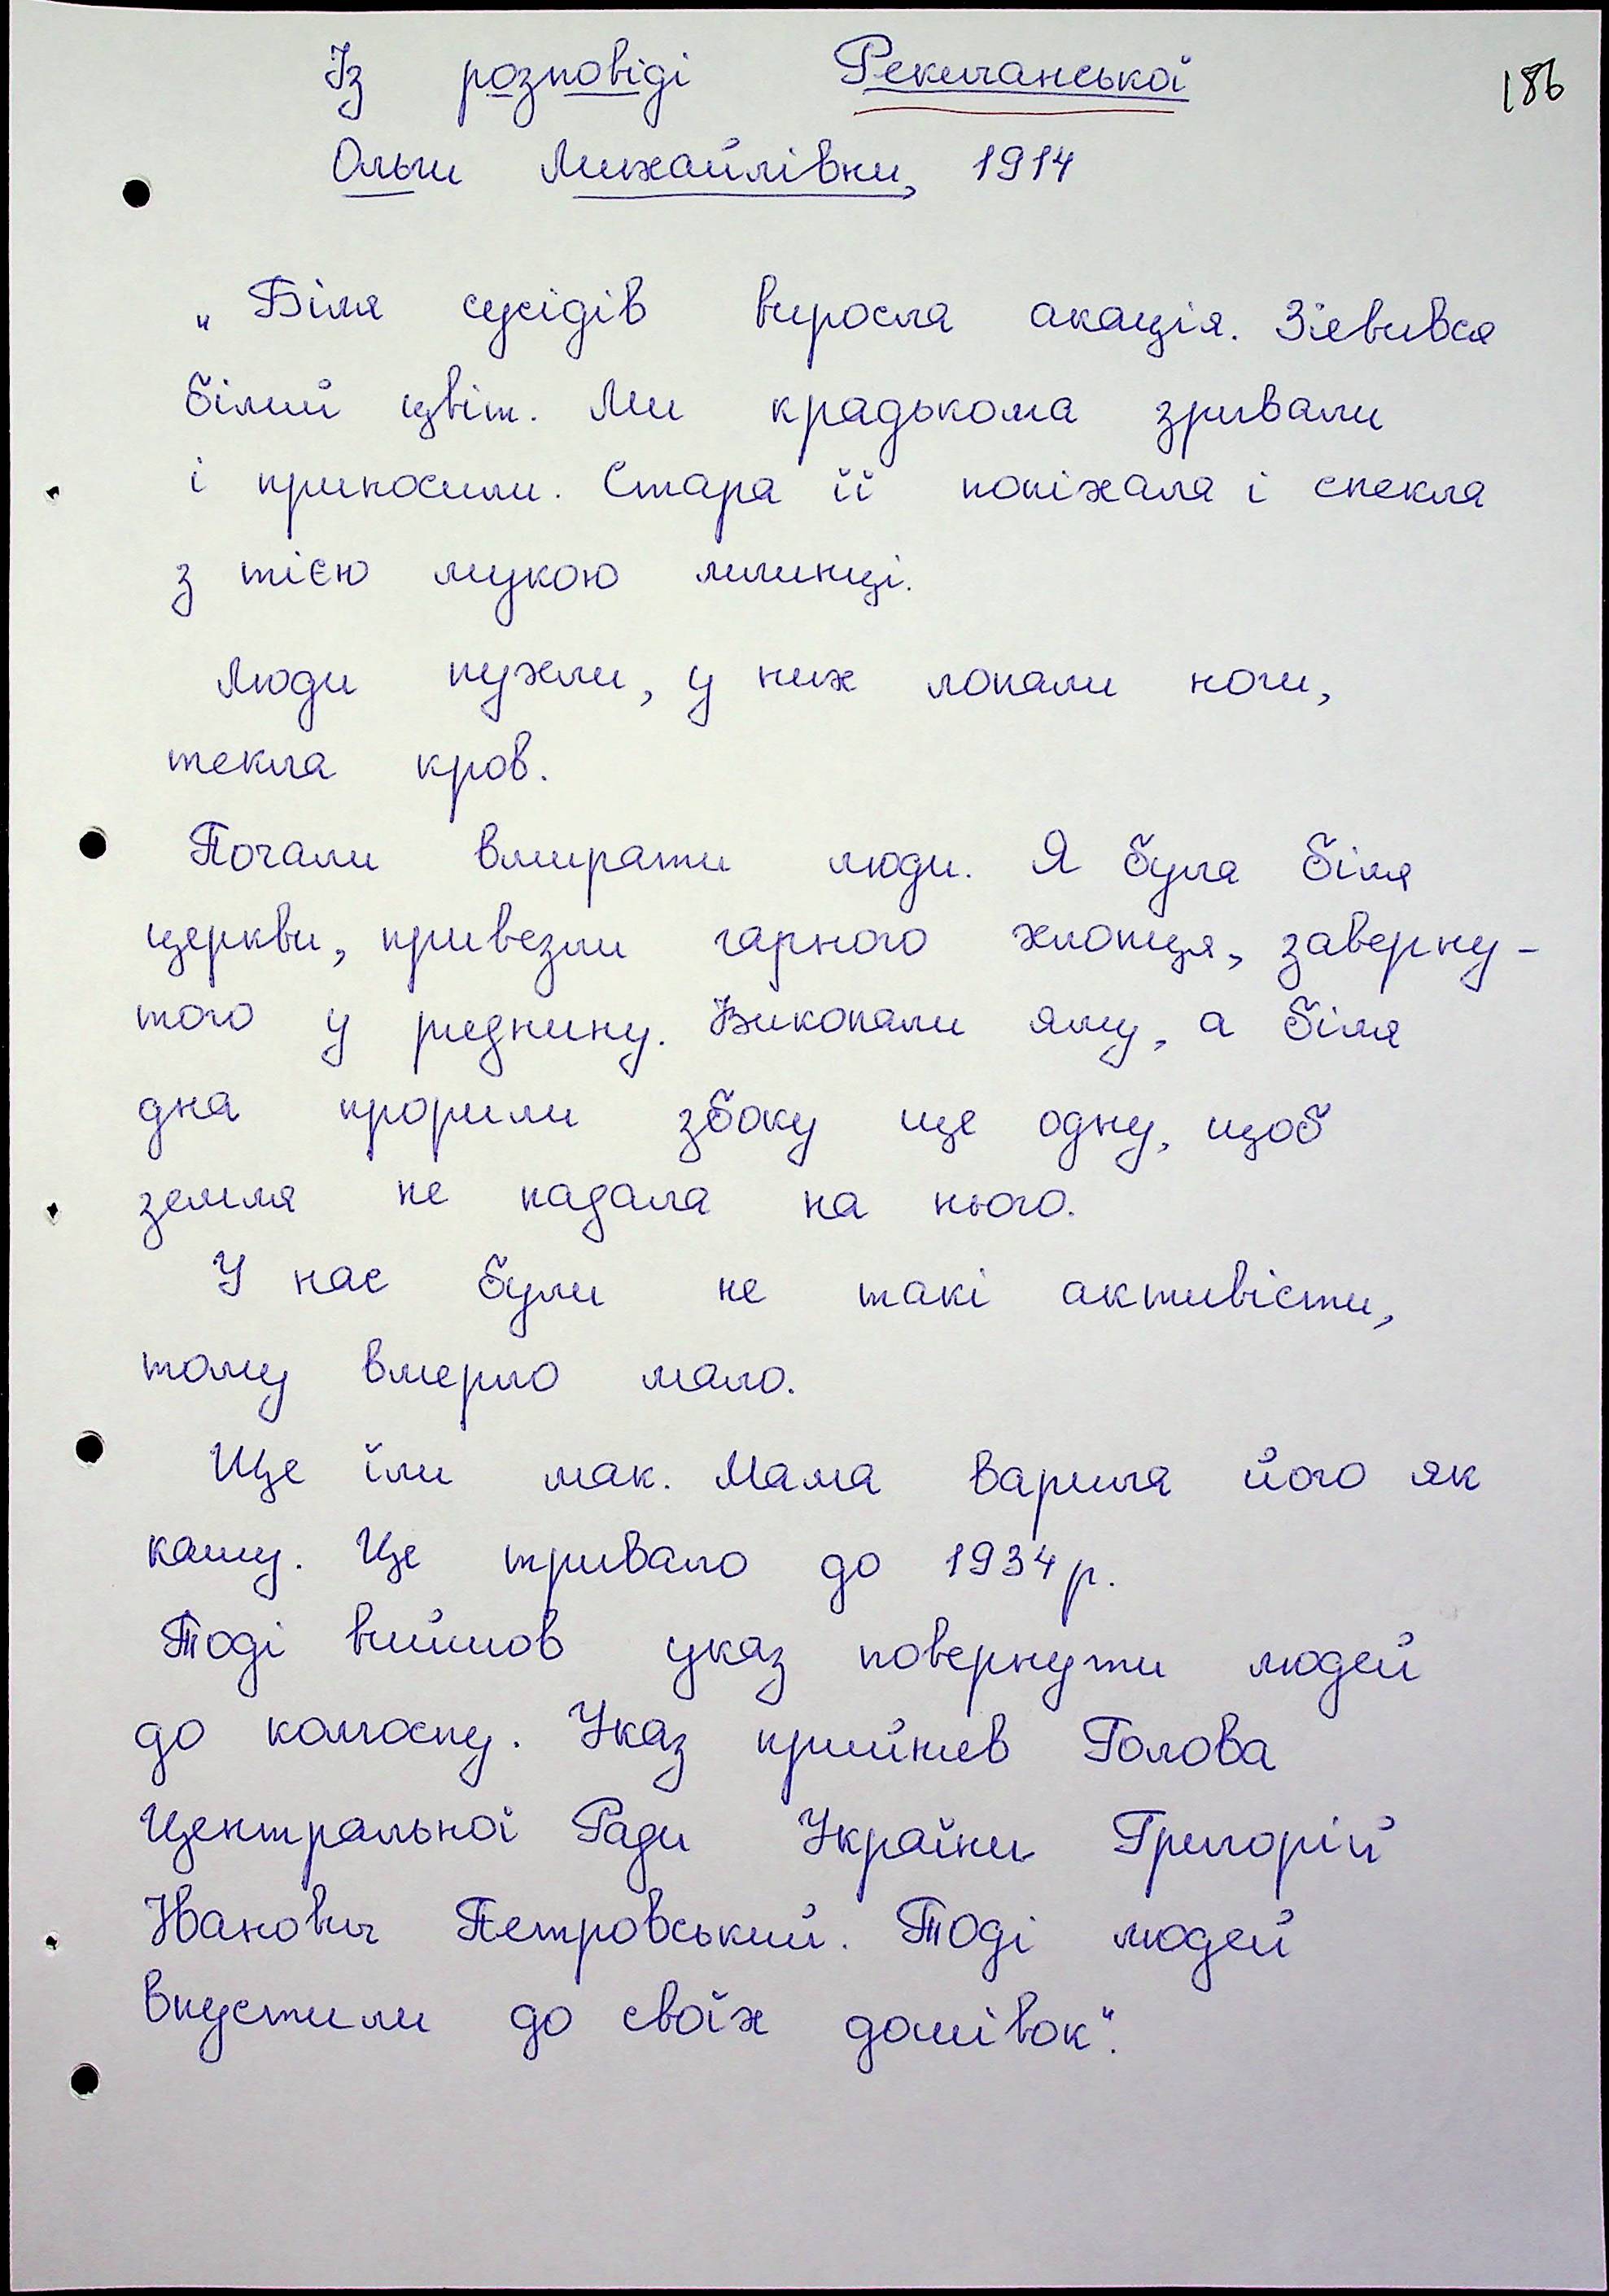 Із розповіді Рекичанської
186
Ольги Михайлівни, 1914
„Біля сусідів виросла акація. Зʼявився
білий цвіт. Ми крадькома зривали
і приносили. Стара її попіхала і спекла
з тією мукою млинці.
Люди пухли, у них лопали ноги,
текла кров.
Почали вмирати люди. Я була біля
церкви, привезли гарного хлопця, заверну-
того у реднину. Викопали яму, а біля
дна прорили збоку ще одну, щоб
земля не падала на нього.
У нас були не такі активісти,
тому вмерло мало.
Ще їли мак. Мама варила його як
кашу. Це тривало до 1934 р.
Тоді вийшов указ повернути людей
до колгоспу. Указ прийняв Голова
Центральної Ради України Григорій
Іванович Петровський. Тоді людей
впустили до своїх домівок".